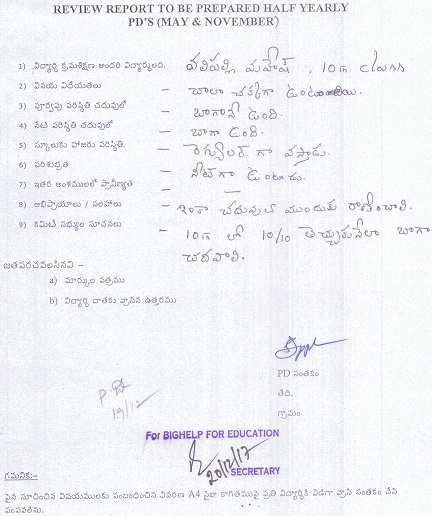 REVIEW REPORT TO BE PREPARED HALF YEARLY
PD'S (MAY & NOVEMBER)
1) విద్యార్థి క్రమశిక్షణ అందరి విద్యార్థులది. వలిపల్లి మహేష్ , 10th class
2) వినయ విధేయతలు – చాలా చక్కగా ఉంటాయి.
3) పూర్వపు పరిస్థితి చదువులో – బాగానే ఉంది.
4) నేటి పరిస్థితి చదువులో – బాగా ఉంది.
5) స్కూలుకు హాజరు పరిస్థితి. – రెగ్యులర్ గా వస్తాడు.
6) పరిశుభ్రత – నీట్‌గా ఉంటాడు.
7) ఇతర అంశములలో ప్రావీణ్యత – —
8) అభిప్రాయాలు / సలహాలు – ఇంకా చదువులో ముందుకు రాణించాలి.
9) కమిటీ సభ్యుల సూచనలు – 10th లో 10/10 తెచ్చుకునేలా బాగా
చదవాలి.
జతపరచవలసినవి -
a) మార్కుల పత్రము
b) విద్యార్థి దాతకు వ్రాసిన ఉత్తరము
PD సంతకం
తేది.
గ్రామం
19/12
For BIGHELP FOR EDUCATION
20/12/17
SECRETARY
గమనిక:-
పైన సూచించిన విషయములకు సంబంధించిన వివరణ A4 సైజు కాగితముపై ప్రతి విద్యార్థికి విడిగా వ్రాసి సంతకం చేసి
పంపవలెను.